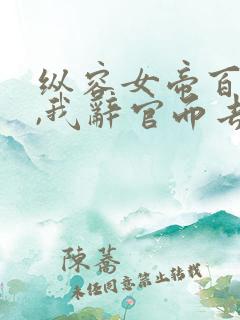 纵容女帝百
,我辞官而去
陳蕎
未经同意禁止转载